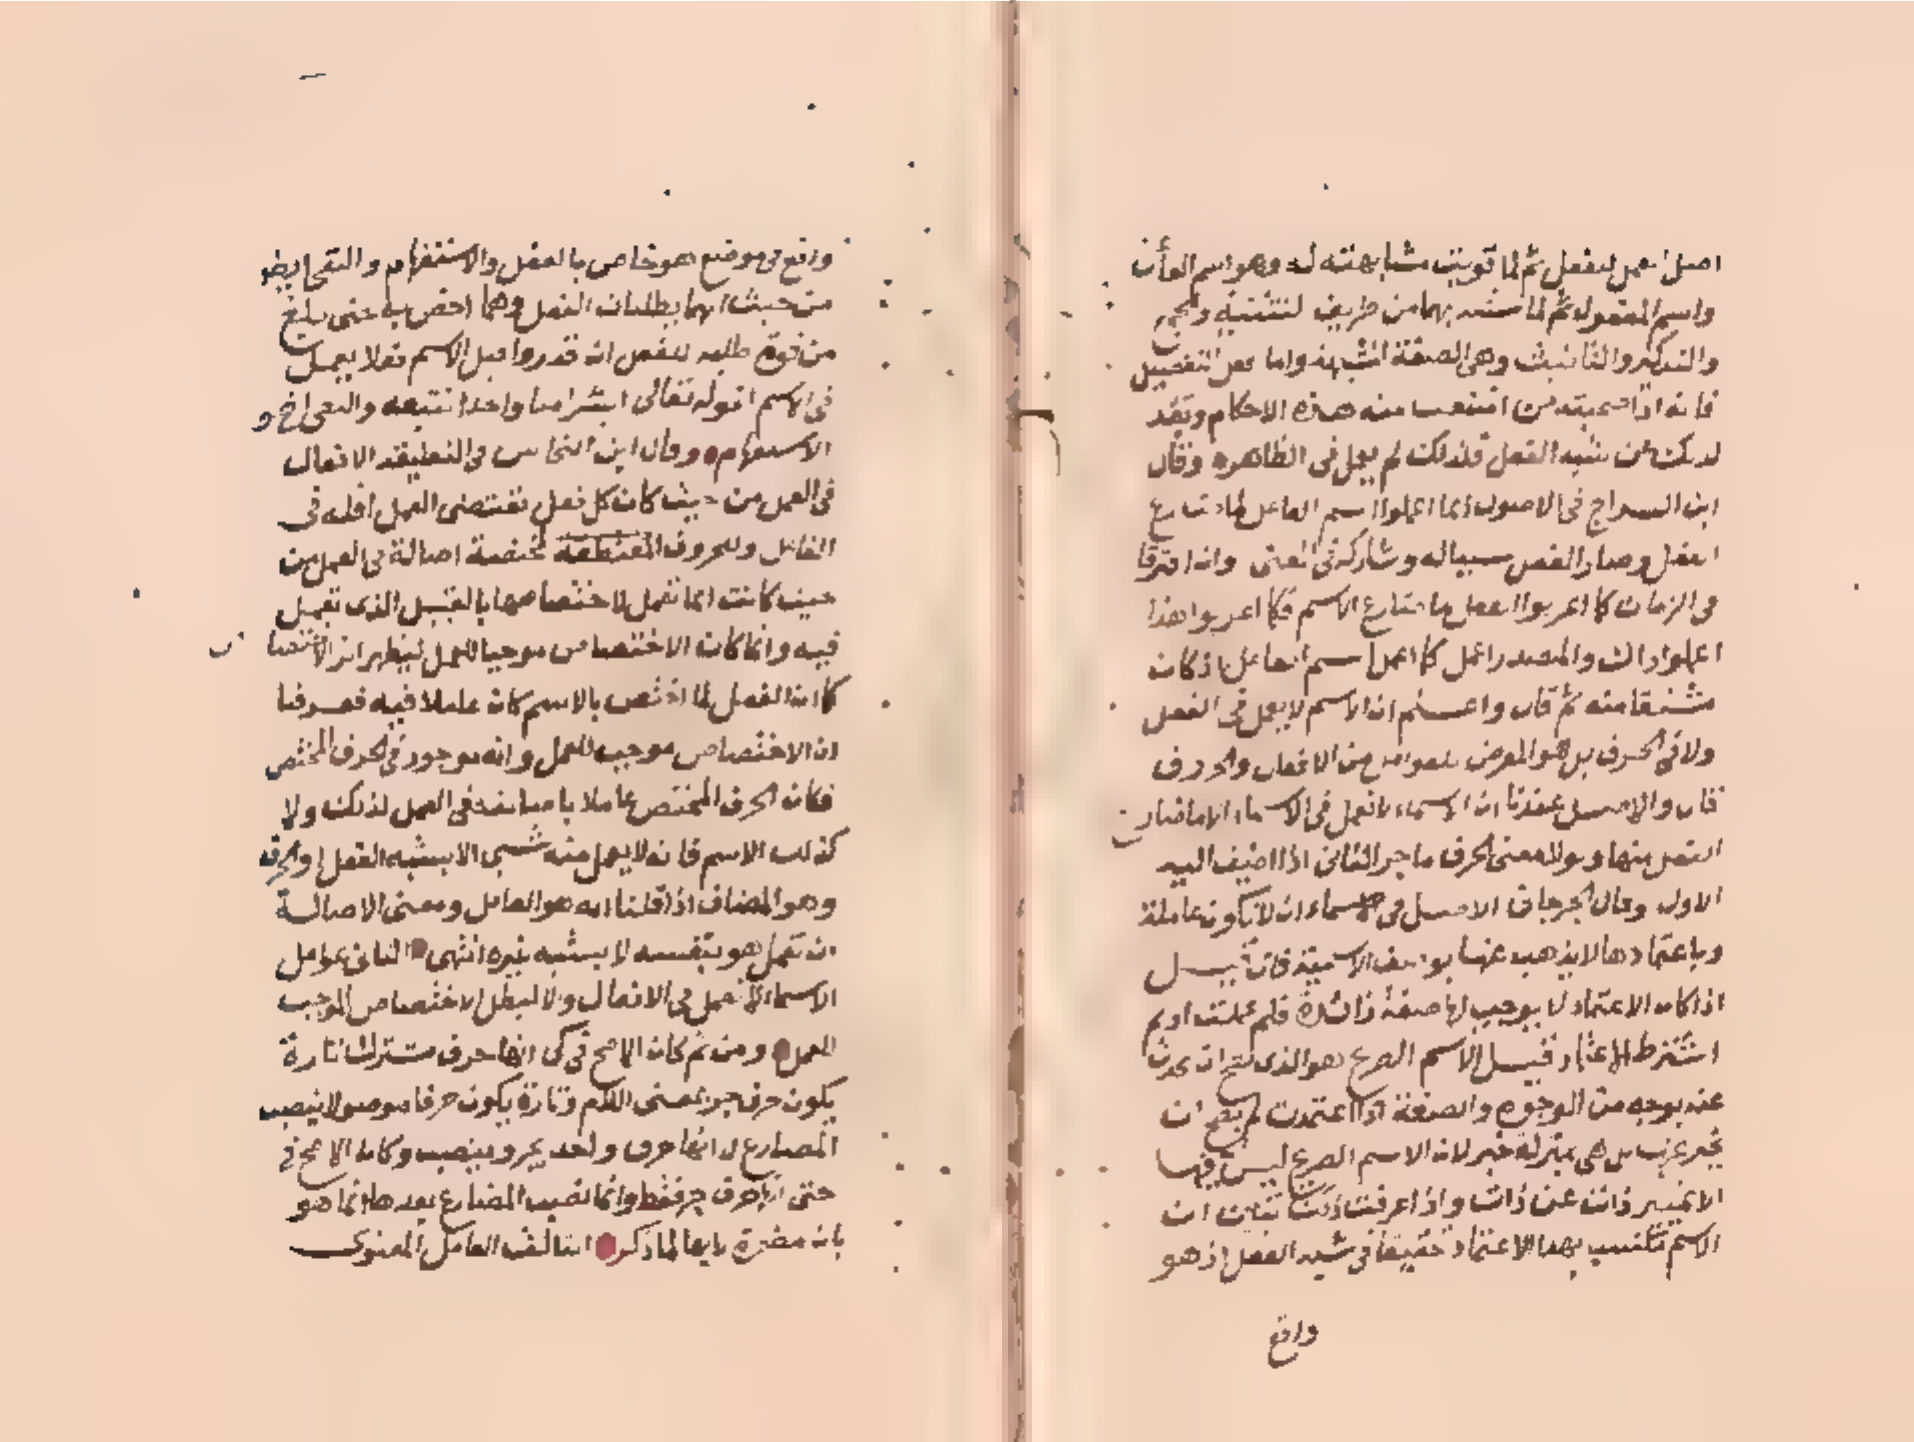 اصل العمل للفعل ثم لما قويت مشابهته له وهو اسم الفاعل
واسم المفعول ثم لما شبه بهما من طريق التثنية والجمع
والتذكير والتانيث وهي الصفة المشبهة واما افعل التفضيل
فانه اذا صحبته من امتنعت منه هذه الاحكام وبعد
لذلك عن شبه الفعل فلذلك لم يعمل في الظاهر وقال
ابن السراج في الاصول انما اعملوا اسم الفاعل لما ضارع
الفعل وصار الفعل سببا له وشاركه في المعنى وان افترقا
في الزمان كما اعربوا الفعل لما ضارع الاسم فكما اعربوا هذا
اعملوا ذاك والمصدر اعمل كما اعمل اسم الفاعل اذ كان
مشتقا منه ثم قال واعلم ان الاسم لا يعمل في الفعل
ولا في الحرف بل هو المعرض للعوامل من الافعال والحروف
قال والاصل عندنا ان الاسماء لا تعمل في الاسماء الا ما ضارع
الفعل منها ولولا معنى الحرف ما جر الثاني اذا اضيف اليه
الاول وقال الجرجاني الاصل في الاسماء ان لا تكون عاملة
وباعتمادها لا يذهب عنها بوصف الاسمية فان قيل
اذا كان الاعتماد لا يوجب لها صفة زائدة فلم عملت او لم
اشترط الاعتماد قيل الاسم الصريح هو الذي يصح ان يحدث
عنه بوجه من الوجوه والصفة اذا اعتمدت لم يصح ان
يخبر عنها بل هي بمنزلة خبر لان الاسم الصريح ليس فيه
الا تمييز ذات عن ذات واذا عرفت ذلك تبين ان
الاسم تكتسب بهذا الاعتماد تحقيقا في شبه الفعل اذ هو
واقع
واقع في موضع هو خاص بالفعل والاستفهام والنفي ايضا
من حيث انهما يطلبان الفعل وهما اخص به حتى بلغ
من قوة طلبه للفعل انه قدروا قبل الاسم فعلا يعمل
في الاسم لقوله تعالى ابشرا منا واحدا نتبعه والنفي اخو
الاستفهام وقال ابن النحاس في التعليقة الافعال
في العمل من حيث كان كل فعل يقتضي العمل اقله في
الفاعل وللحروف المختصة اصالة في العمل من
حيث كانت انما تعمل لاختصاصها بالقبيل الذي تعمل
فيه وانما كان الاختصاص موجبا للعمل ليظهر اثر الاختصاص
كما ان الفعل لما اختص بالاسم كان عاملا فيه فعرفنا
ان الاختصاص موجب للعمل وانه موجود في الحرف المختص
فكان الحرف المختص عاملا باصالته في العمل لذلك ولا
كذلك الاسم فانه لا يعمل منه شيء الا بشبه الفعل او الحرف
وهو المضاف اذا قلنا انه هو العامل ومعنى الاصالة
ان تعمل هو بنفسه لا بشبه غيره انتهى الثاني عوامل
الاسماء لا تعمل في الافعال والا لبطل الاختصاص الموجب
للعمل ومن ثم كان الاصح في كي انها حرف مشترك تارة
يكون حرف جر بمعنى اللام وتارة يكون حرفا موصولا ينصب
المضارع لا انها حرف واحد يجر وينصب وكان الاصح في
حتى انها حرف جر فقط وانما نصب المضارع بعدها انما هو
بان مضمرة لا بها لما ذكر الثالث العامل المعنوي